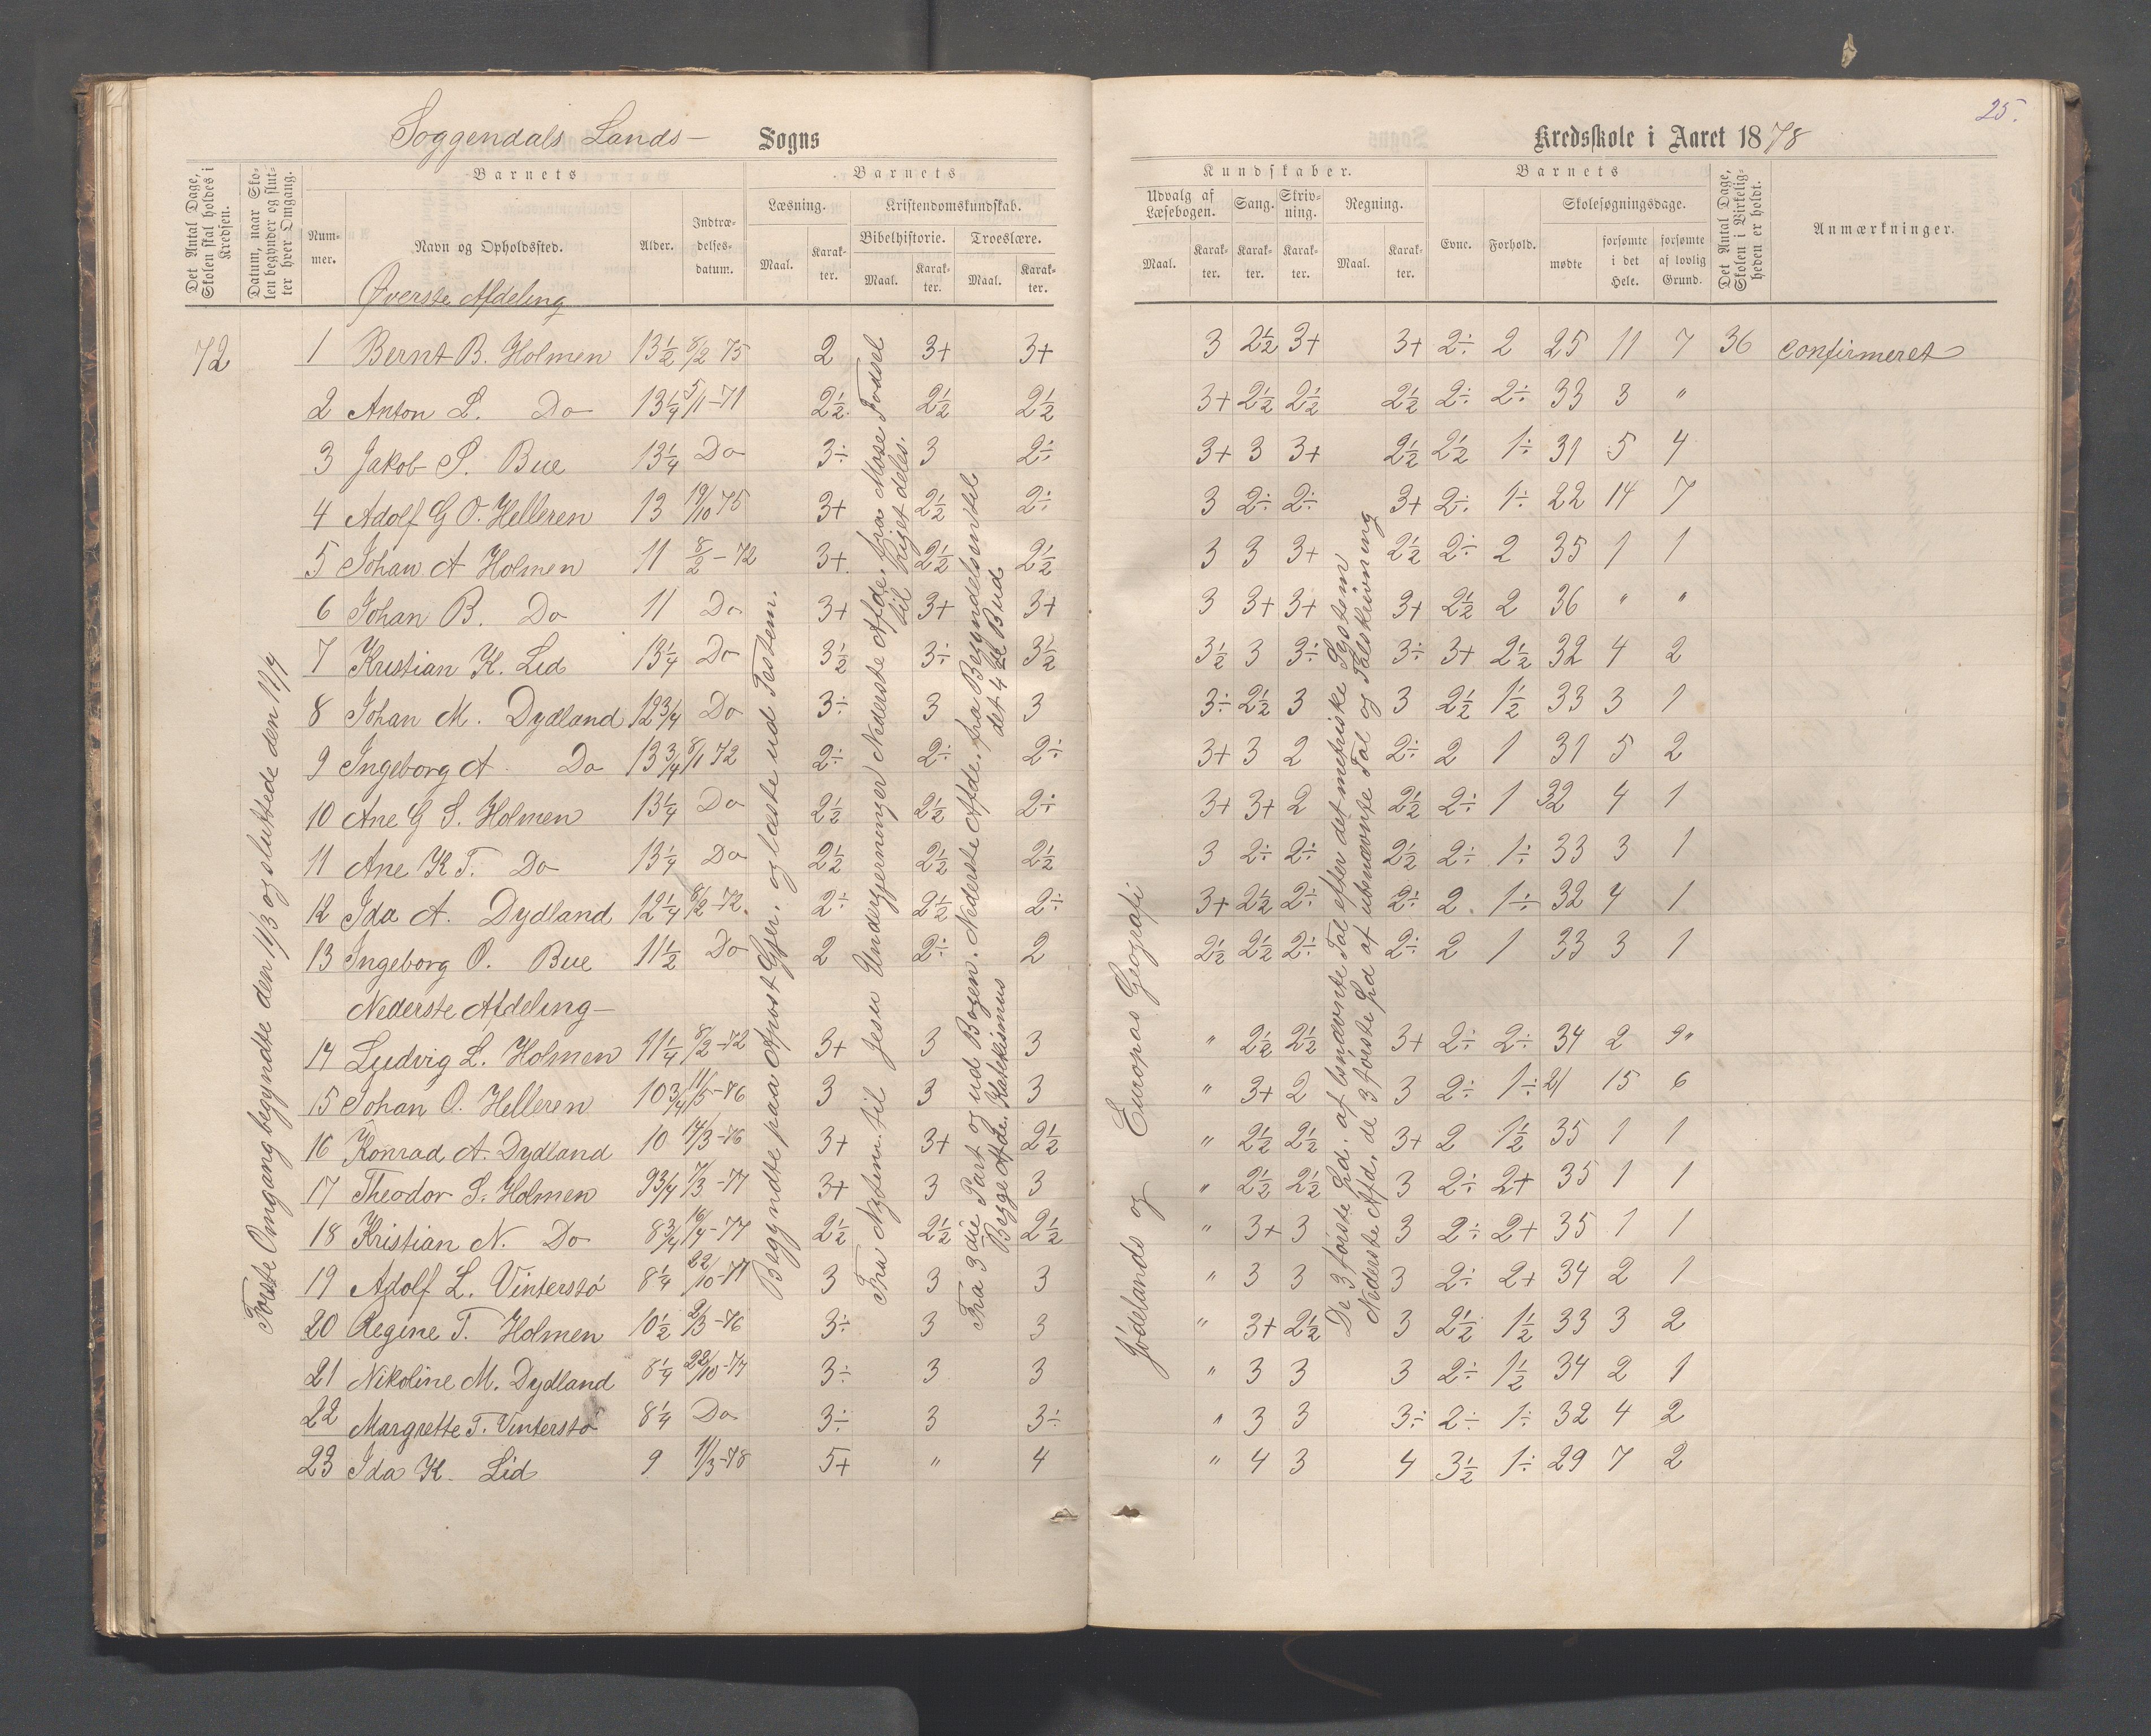 25.
Soggendals Lands- Sogns Kredsskole i Aaret 1878
Det Antal Dage, Skolen skal holdes i Kredsen.
Datum, naar Skolen begynder og slutter hver Omgang.
Barnets
Nummer.
Navn og Opholdssted.
Alder.
Indtrædelsesdatum.
Barnets
Læsning.
Maal.
Karakter.
Kristendomskundskab.
Bibelhistorie.
Maal.
Karakter.
Troeslære.
Maal.
Karakter.
Kundskaber.
Udvalg af Læsebogen.
Maal.
Karakter.
Sang.
Karakter.
Skrivning.
Karakter.
Regning.
Maal.
Karakter.
Barnets
Evne.
Forhold.
Skolesøgningsdage.
mødte
forsømte i det Hele.
forsømte af lovlig Grund.
Det Antal Dage, Skolen i Virkeligheden er holdt.
Anmærkninger.
Øverste Afdeling
72 1 Bernt B. Holmen 13½ 8/2 75 2 3+ 3+ 3 2½ 3+ 3+ 2÷ 2 25 11 7 36 confirmeret
2 Anton L. Do 13¼ 5/1-71 2½ 2½ 2½ 3+ 2½ 2½ 2½ 2÷ 2÷ 33 3 "
3 Jakob S. Bue 13¼ Do 3÷ 3 2÷ 3+ 3 3+ 2½ 2½ 1÷ 31 5 4
4 Adolf G O. Helleren 13 19/10 75 3+ 2½ 2÷ 3 2÷ 2÷ 3+ 2÷ 1÷ 22 14 7
5 Johan A Holmen 11 8/2-72 3+ 2½ 2½ 3 3 3+ 2½ 2÷ 2 35 1 1
6 Johan B. Do 11 Do 3+ 3+ 3+ 3 3+ 3+ 3+ 2½ 2 36 " "
7 Kristian K. Lid 13¼ Do 3½ 3÷ 3½ 3½ 3 3÷ 3÷ 3+ 2½ 32 4 2
8 Johan M. Dydland 12¾ Do 3÷ 3 3 3÷ 2½ 3 3 2½ 1½ 33 3 1
9 Ingeborg A Do 13¾ 8/1 72 2÷ 2÷ 2÷ 3+ 3 2 2÷ 2 1 31 5 2
10 Ane G S. Holmen 13¼ Do 2½ 2½ 2÷ 3+ 3+ 2 2½ 2÷ 1 32 4 1
11 Ane K T. Do 13¼ Do 2½ 2½ 2½ 3 2÷ 2÷ 2½ 2÷ 1÷ 33 3 1
12 Ida A. Dydland 12¼ 8/2-72. 2÷ 2½ 2÷ 3+ 2½ 2÷ 2÷ 2 1÷ 32 4 1
13 Ingeborg O. Bue 11½ Do 2 2÷ 2 2½ 2½ 2÷ 2÷ 2 1 33 3 1
Nederste Afdeling
14 Ludvig L. Holmen 11¼ 8/2-72 3+ 3 3 " 2½ 2½ 3+ 2÷ 2÷ 34 2 2"
15 Johan O. Helleren 10¾ 11/5-76 3 3 3 " 3+ 2 3 2÷ 1÷ 21 15 6
16 Konrad A. Dydland 10 14/3-76 3+ 3+ 2½ " 2½ 2½ 3+ 2 1½ 35 1 1
17 Theodor L. Holmen 9¾ 7/3-77 3+ 3 3 " 2½ 2½ 3 2÷ 2+ 35 1 1
18 Kristian N. Do 8¾ 16/4-77 2½ 2½ 2½ " 3+ 3 3 2÷ 2+ 35 1 1
19 Adolf L. Vinterstø 8¼ 22/10-77 3 3 3 " 3 3 3 2÷ 2+ 34 2 1
20 Regine T. Holmen 10½ 2/3-76 3÷ 3 3 " 3+ 2½ 3 2½ 1½ 33 3 2
21 Nikoline M. Dydland 8¼ 22/10-77 3÷ 3 3 " 3 3 3 2÷ 1½ 34 2 1
22 Margrette T. Vinterstø 8¼ Do 3÷ 3 3÷ " 3 3 3÷ 2÷ 1÷ 32 4 2
23 Ida K. Lid 9 11/3-78 5+ " 4 " 4 3 4 3½ 1÷ 29 7 2
Første Omgang begyndte den 11/3 og sluttede den 12/4
Begyndte paa Apost Gjer. og læste ud Testem.
Fra Nytem. til Jesu Undergjerninger Nederste Afde. fra Mose Fødsel
til Riget deles.
Fra 3die Part og ud Bogen. Nederste Afde. fra Begyndelsen til
det 4de Bud
Begge Afde. Katekismus
Jødelands og Europas Geografi
De 3 første Ld. af benævnte Tal efter det metriske System
Nederste Afd. de 3 første Ld af ubenævnte Tal og Talskrivning